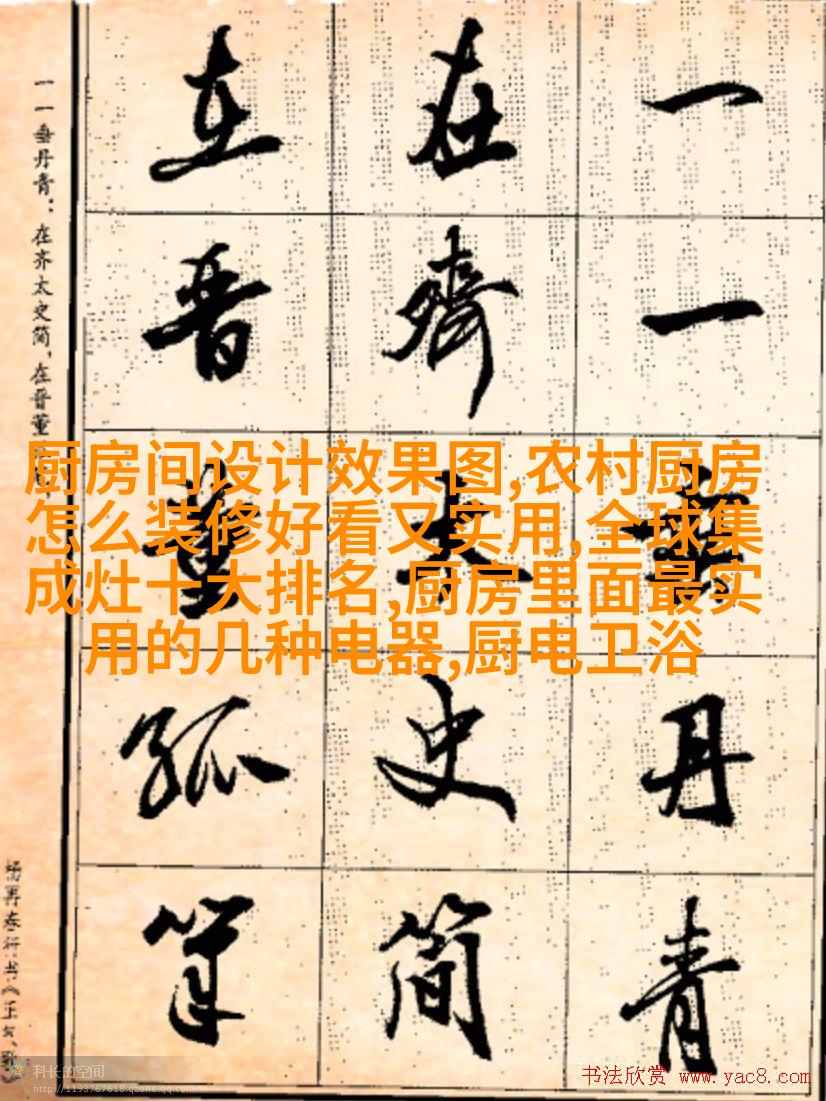 一一垂丹青
在齊太史简
在晋董狐筆
一一垂丹青：在齐太史简，在晋董
厨房间设计效果图,农村厨房
怎么装修好看又实用,全球集
成灶十大排名,厨房里面最实
用的几种电器,厨电卫浴
科长的空间
http://1193767618.qzone.qq.com
书法欣赏 www.yac8.com